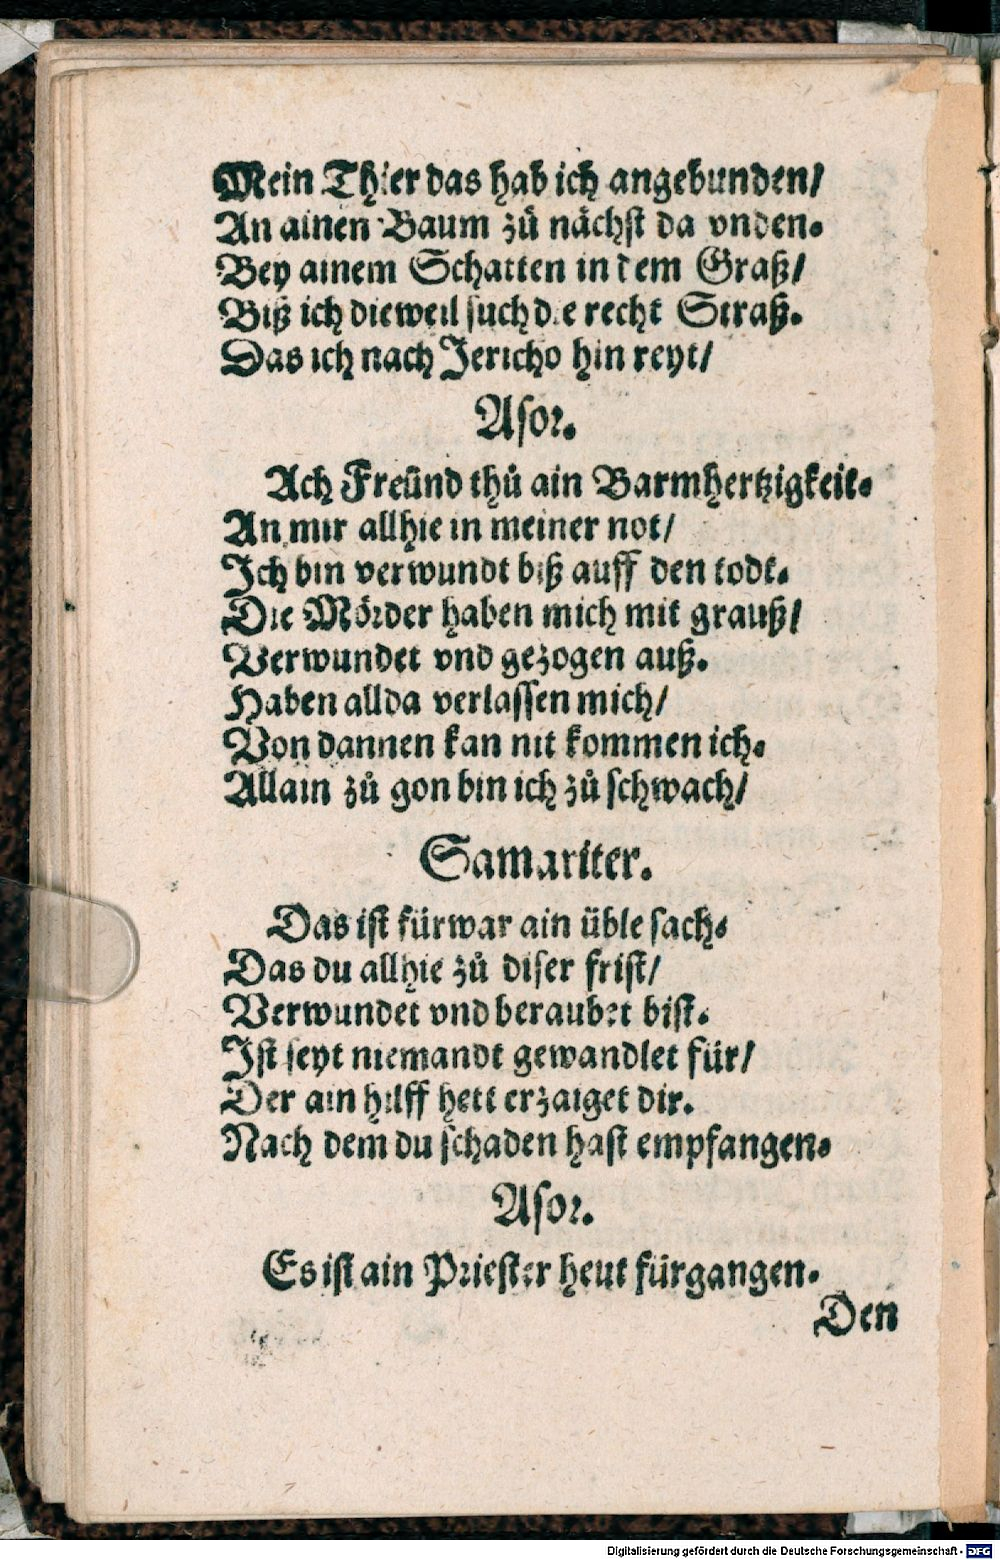 Mein Thier das hab ich angebunden/
An ainen Baum zů nächst da vnden.
Bey ainem Schatten in dem Graß/
Biß ich dieweil such die recht Straß.
Das ich nach Jericho hin reyt/
Asor.
Ach Freünd thů ain Barmhertzigkeit.
An mir allhie in meiner not/
Ich bin verwundt biß auff den todt.
Die Mörder haben mich mit grauß/
Verwundet vnd gezogen auß.
Haben allda verlassen mich/
Von dannen kan nit kommen ich.
Allain zů gon bin ich zů schwach/
Samariter.
Das ist fürwar ain üble sach.
Das du allhie zů diser frist/
Verwundet vnd beraubet bist.
Ist seyt niemandt gewandlet für/
Der ain hilff hett erzaiget dir.
Nach dem du schaden hast empfangen.
Asor.
Es ist ain Priester heut fürgangen.
Den
Digitalisierung gefördert durch die Deutsche Forschungsgemeinschaft - DFG